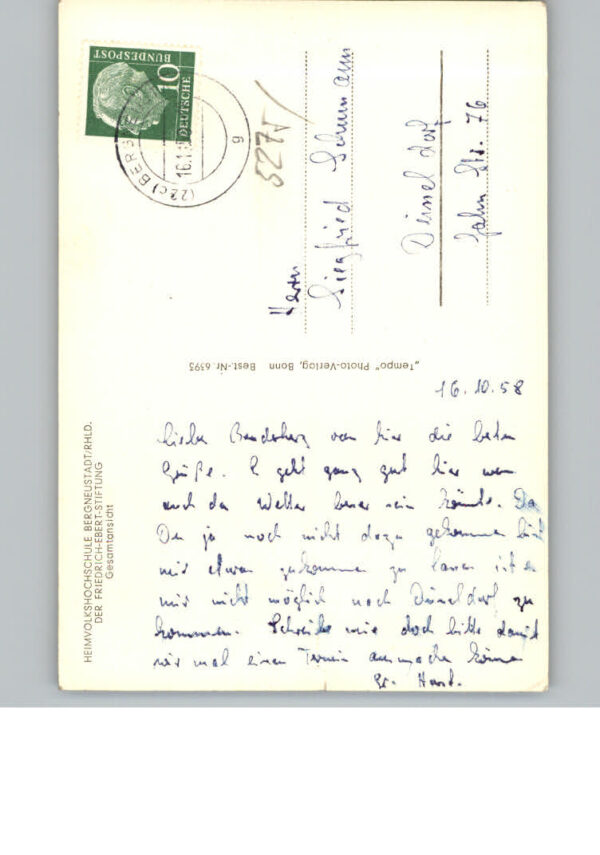 HEIMVOLKSHOCHSCHULE BERGNEUSTADT/RHLD.
DER FRIEDRICH-EBERT-STIFTUNG
Gesamtansicht
„Tempo" Photo-Verlag, Bonn Best.-Nr. 6393
10
DEUTSCHE
BUNDESPOST
(22c) BERG
16.1
g
527
Herrn
Siegfried Schumann
Düsseldorf
Jahn Str. 76
16.10.58
von hier die besten
Grüße. geht ganz gut hier wenn
auch das Wetter besser sein könnte. Da
Du ja noch nicht dazu gekommen bist
mir etwas zukommen zu lassen ist es
mir nicht möglich nach Düsseldorf zu
kommen. Schreibe mir doch bitte damit
wir mal einen Termin ausmachen können
Gr. Horst.